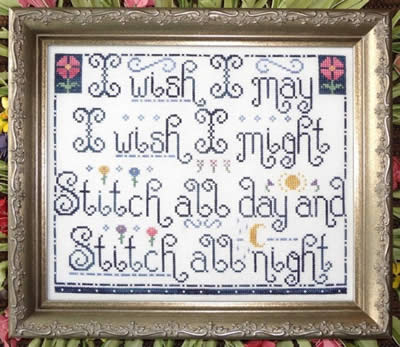 I wish I may
I wish I might
Stitch all day and
Stitch all night